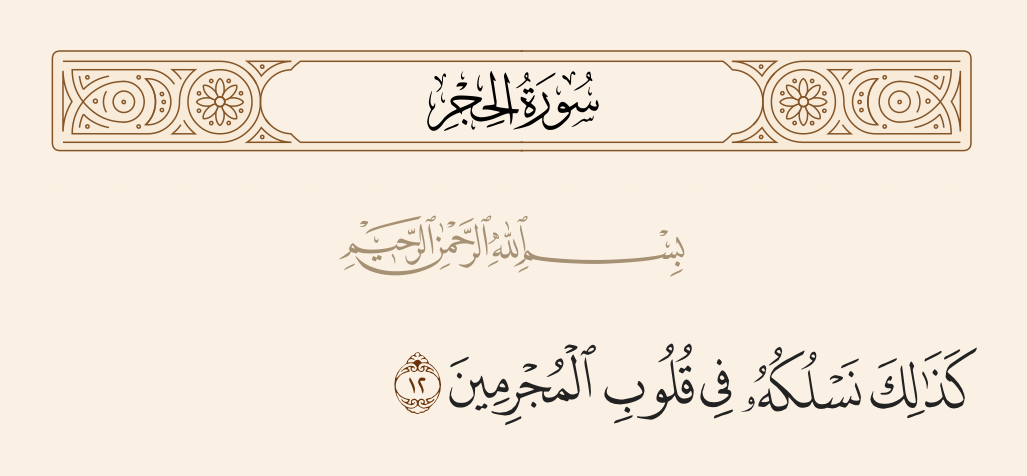 سُورَةُ الحِجْرِ
بِسْمِ ٱللَّهِ ٱلرَّحْمَٰنِ ٱلرَّحِيمِ
كَذَٰلِكَ نَسْلُكُهُۥ فِى قُلُوبِ ٱلْمُجْرِمِينَ ١٢